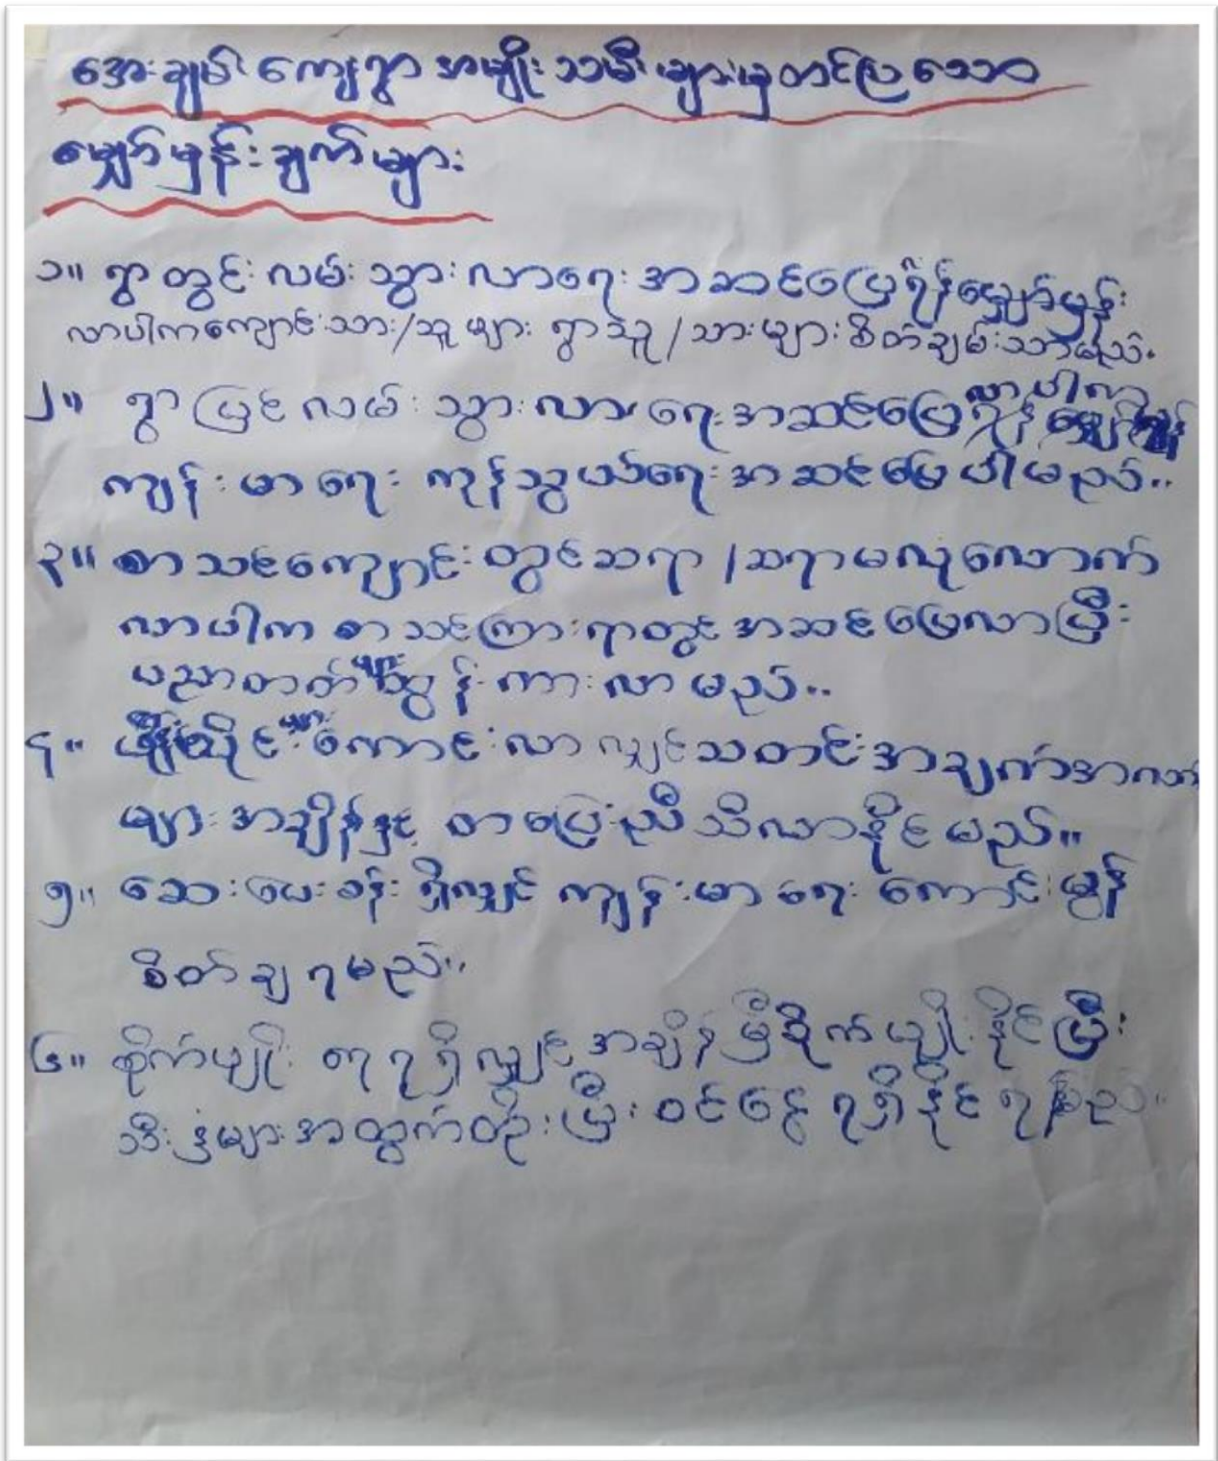 အေးချမ်း ကျေးရွာ အမျိုးသမီးများမှ တင်ပြသော
မျှော်မှန်းချက်များ
၁။ ရွာတွင်းလမ်းသွားလာရေး အဆင်ပြေရန်မျှော်မှန်း
လာပါကကျောင်းသား/သူများ ရွာသူ/သားများစိတ်ချမ်းသာမည်.
၂။ ရွာပြင်လမ်းသွားလာရေးအဆင်ပြေလာပါက
ကျန်းမာရေး ကုန်သွယ်ရေးအဆင်ပြေပါမည်..
၃။ စာသင်ကျောင်းတွင်ဆရာ/ဆရာမလုံလောက်
လာပါက စာသင်ကြားရာတွင် အဆင်ပြေလာပြီး
ပညာတတ်များထွန်းကားလာမည်..
၄။ ဖုန်းလိုင်းများကောင်းလာလျှင်သတင်းအချက်အလက်
များအချိန်နှင့် တပြေးညီသိလာနိုင်မည်။
၅။ ဆေးပေးခန်းရှိလျှင် ကျန်းမာရေး ကောင်းမွန်
စိတ်ချရမည်..
၆။ စိုက်ပျိုး ရေရရှိလျှင် အချိန်မှီစိုက်ပျိုးနိုင်ပြီး
သီးနှံများအထွက်တိုးပြီး ဝင်ငွေရရှိနိုင်